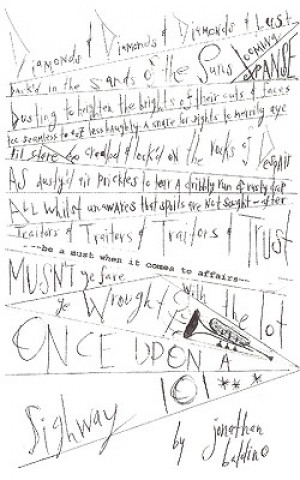 Diamonds & Diamonds & Diamonds & Lust
back'd in the sands of the Suns looming
SPANSE
Dusting to brighten the brights of their cuts & faces
too seamless to not less haughty a snare for sights to merrily aye
til stare to creaked & lock'd on the rocks of Despair
AS dusty'd air prickles to tear a dribbly run of rusty
ALL whilst unawares that spoils are not sought-after
Traitors & Traitors & Traitors & TRUST
---be a must when it comes to affairs--
MUSNT ye fare
ye Wrought with the lot
ONCE UPON A
101***
Sighway
by jonathan
baldino